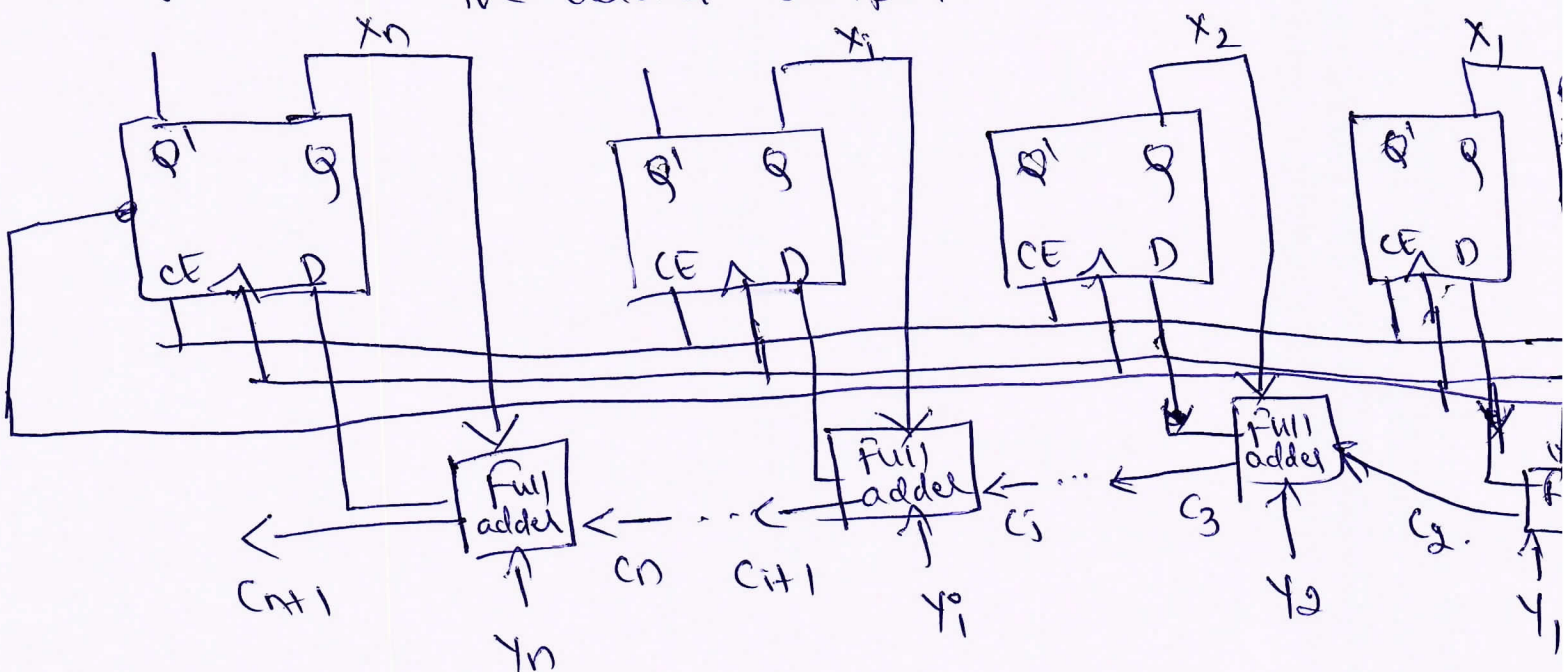 Xn Xi X2 X1
Q' Q Q' Q Q' Q Q' Q
CE D CE D CE D CE D
Full adder Full adder Full adder
Cn+1 Cn Ci+1 Ci C3 C2.
Yn Yi Y2 Y1